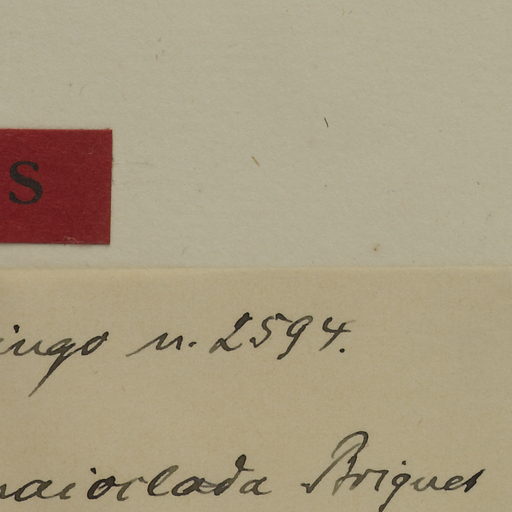 S
ingo n. 2594.
naioclada Briquet